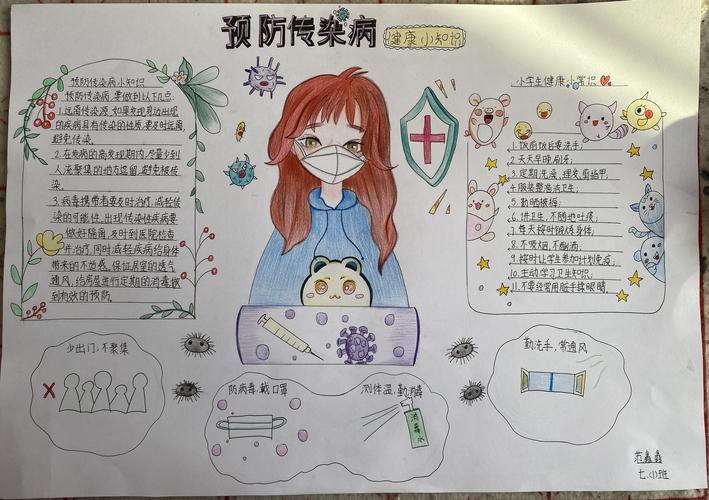 预防传染病
健康小知识
预防传染病小知识
预防传染病,要做到以下几点:
1.远离传染源,如果发现身边出现
的疾病具有传染的性质,要及时远离,
避免传染。
2.在疾病的高发现期内,尽量少到
人流聚集的地方逗留,避免被传
染。
3.病毒携带者要及时治疗,减轻传
染的可能性。出现传染性疾病要
做好隔离,及时到医院检查
并治疗,同时减轻疾病给身体
带来的不适感。保证居室的透气
通风,给房屋进行定期的消毒,做
到有效的预防。
小学生健康小常识
1.饭前饭后要洗手,
2.天天早晚刷牙;
3.定期洗澡,理发,剪指甲;
4.服装整洁卫生;
5.勤晒被褥;
6.讲卫生,不随地吐痰;
7.每天按时锻炼身体;
8.不吸烟,不酗酒;
9.按时让学生参加计划免疫;
10.主动学习卫生知识;
11.不要经常用脏手揉眼睛。
少出门,不聚集
防病毒,戴口罩
测体温,勤消毒
消毒水
勤洗手,常通风
七.(1)班